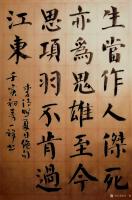 生當作人傑死
亦為鬼雄至今
思項羽不肯過
江東
李清照夏日絕句